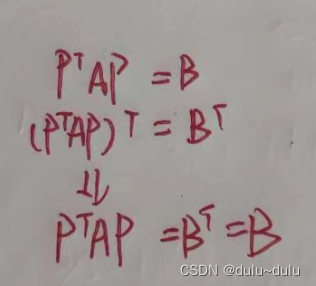 PᵀAP = B
(PᵀAP)ᵀ = Bᵀ
⇓
PᵀAP = Bᵀ = B
CSDN @dulu~dulu